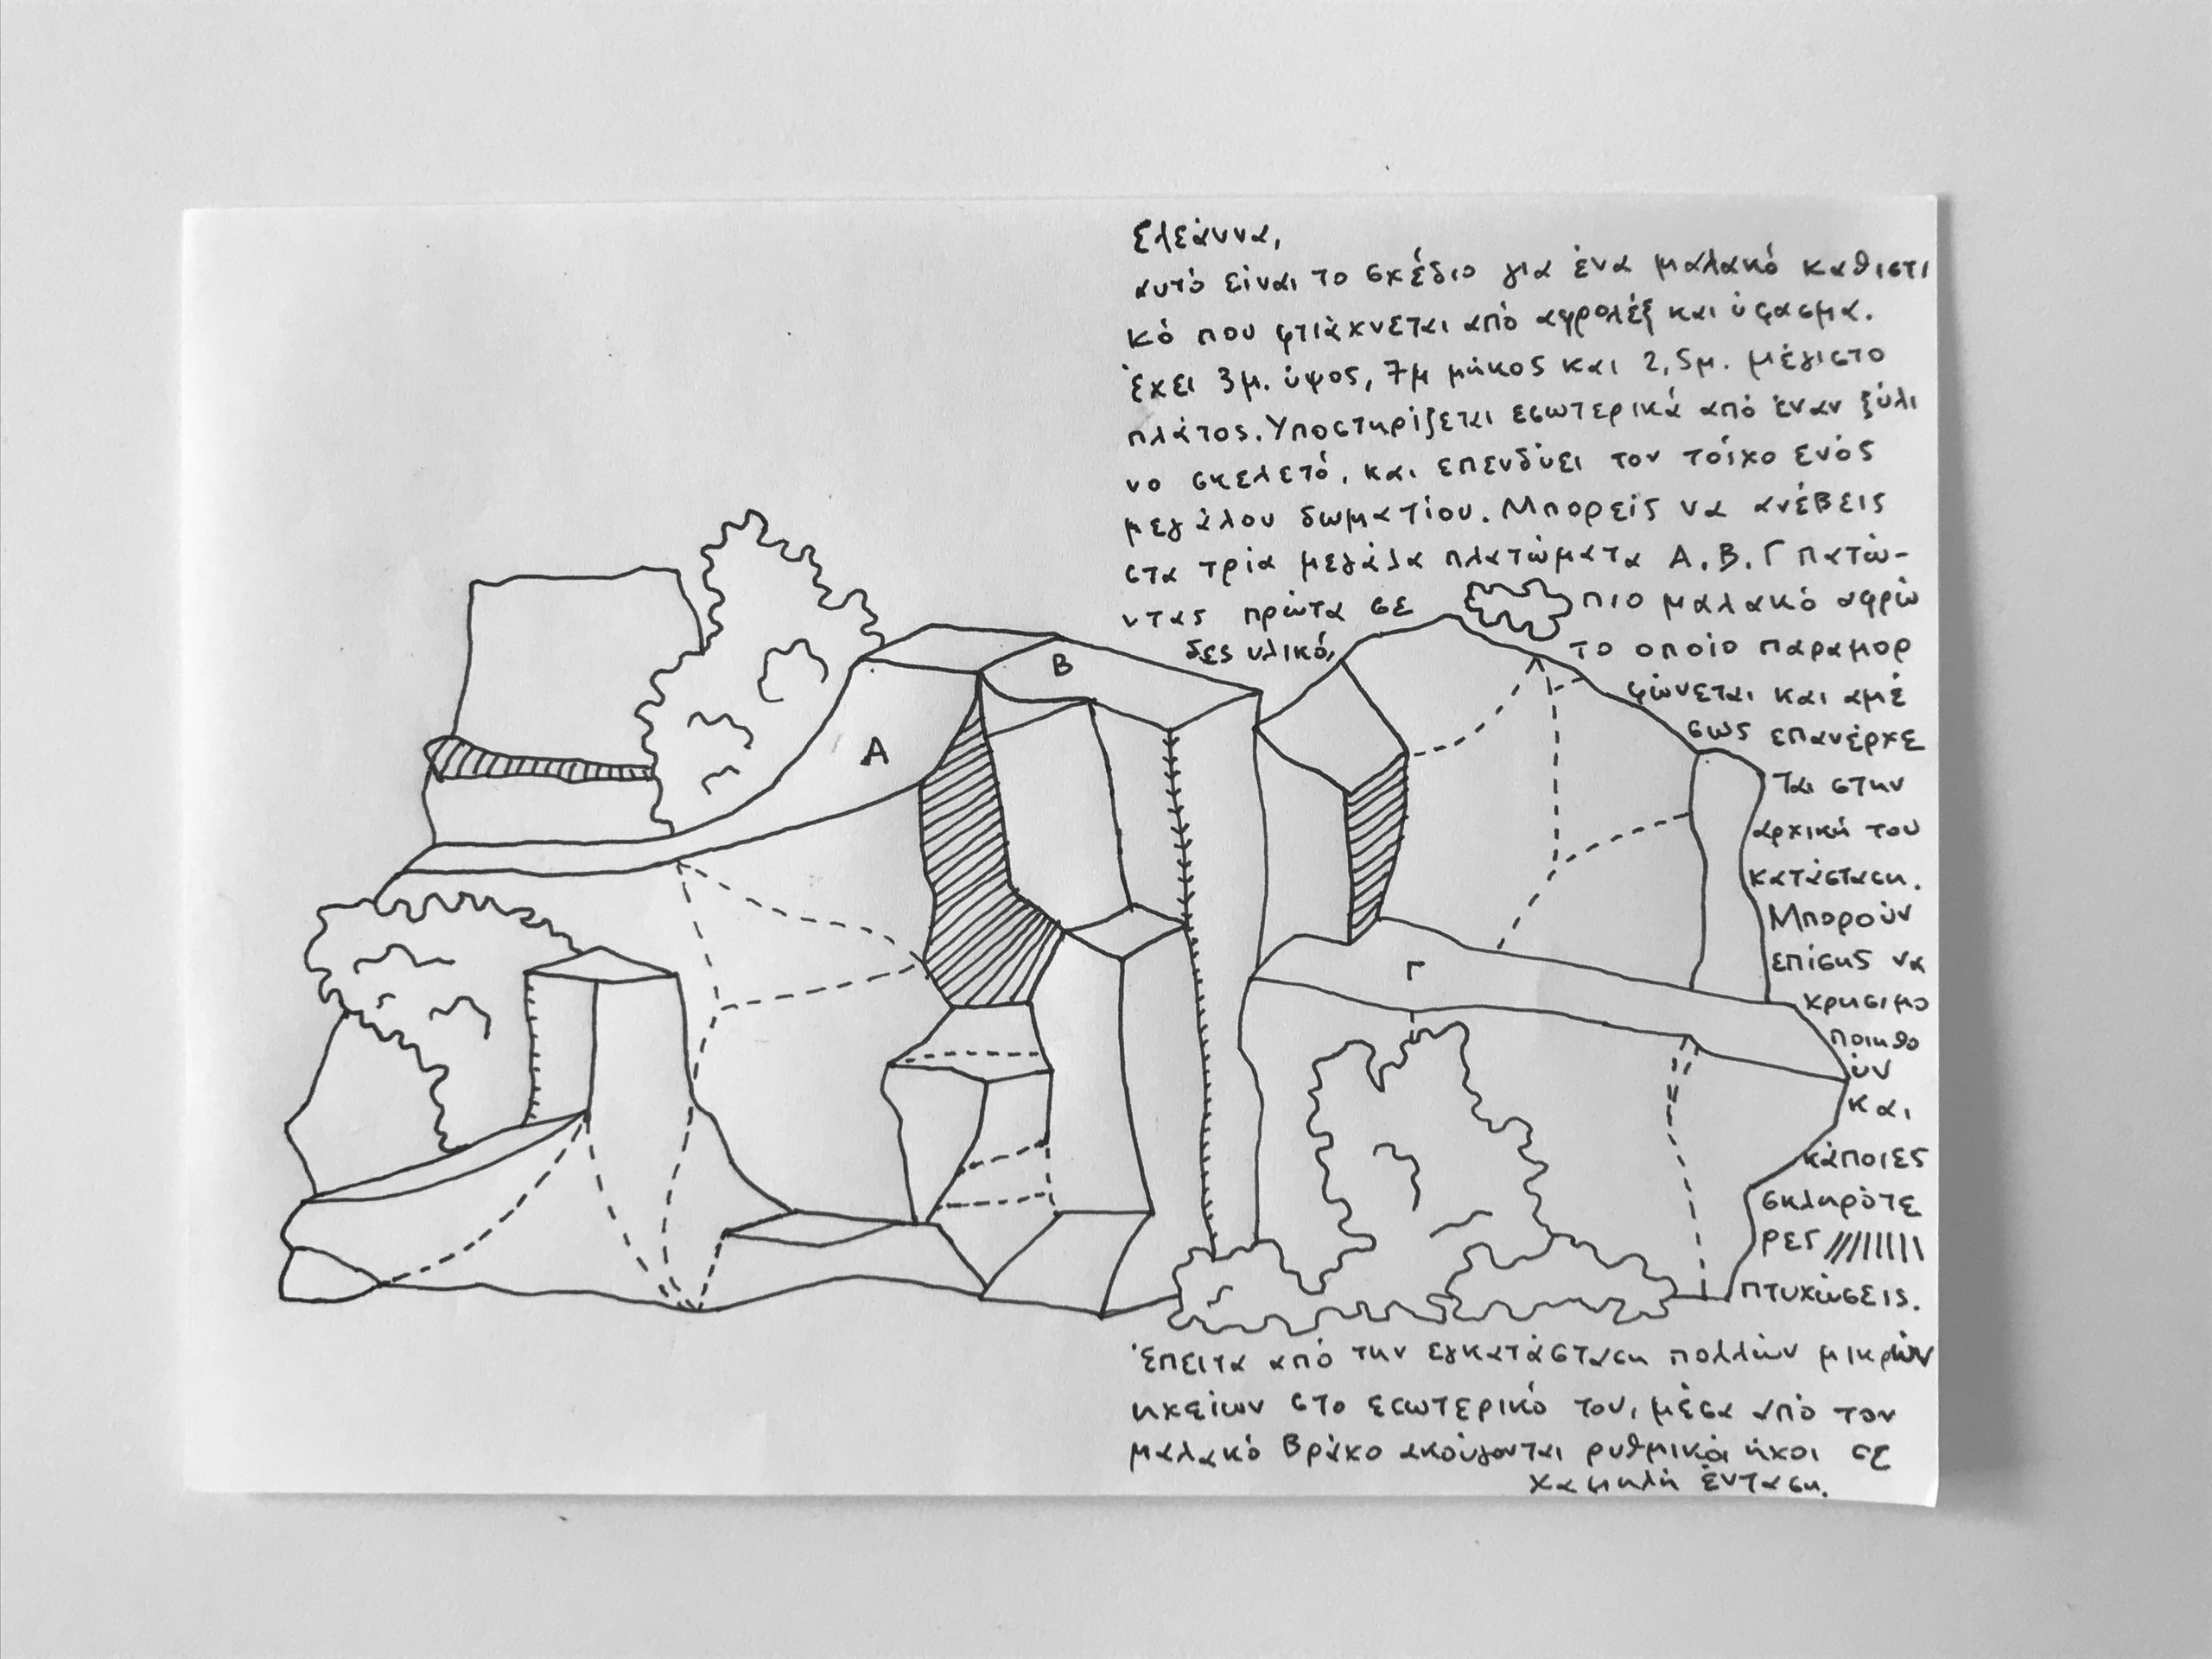 Ελεάννα,
αυτό είναι το σχέδιο για ένα μαλακό καθιστι
κό που φτιάχνεται από αφρολέξ και ύφασμα.
Έχει 3μ. ύψος, 7μ μήκος και 2,5μ. μέγιστο
πλάτος. Υποστηρίζεται εσωτερικά από έναν ξύλι
νο σκελετό, και επενδύει τον τοίχο ενός
μεγάλου δωματίου. Μπορείς να ανέβεις
στα τρία μεγάλα πλατώματα Α, Β, Γ πατώ-
ντας πρώτα σε πιο μαλακό αφρώ
δες υλικό, το οποίο παραμορ
φώνεται και αμέ
σως επανέρχε
ται στην
αρχική του
κατάσταση.
Μπορούν
επίσης να
χρησιμο
ποιηθο
ύν
και
κάποιες
σκληρότε
ρες
πτυχώσεις.
Έπειτα από την εγκατάσταση πολλών μικρών
ηχείων στο εσωτερικό του, μέσα από τον
μαλακό βράχο ακούγονται ρυθμικοί ήχοι σε
χαμηλή ένταση.
Α
Β
Γ